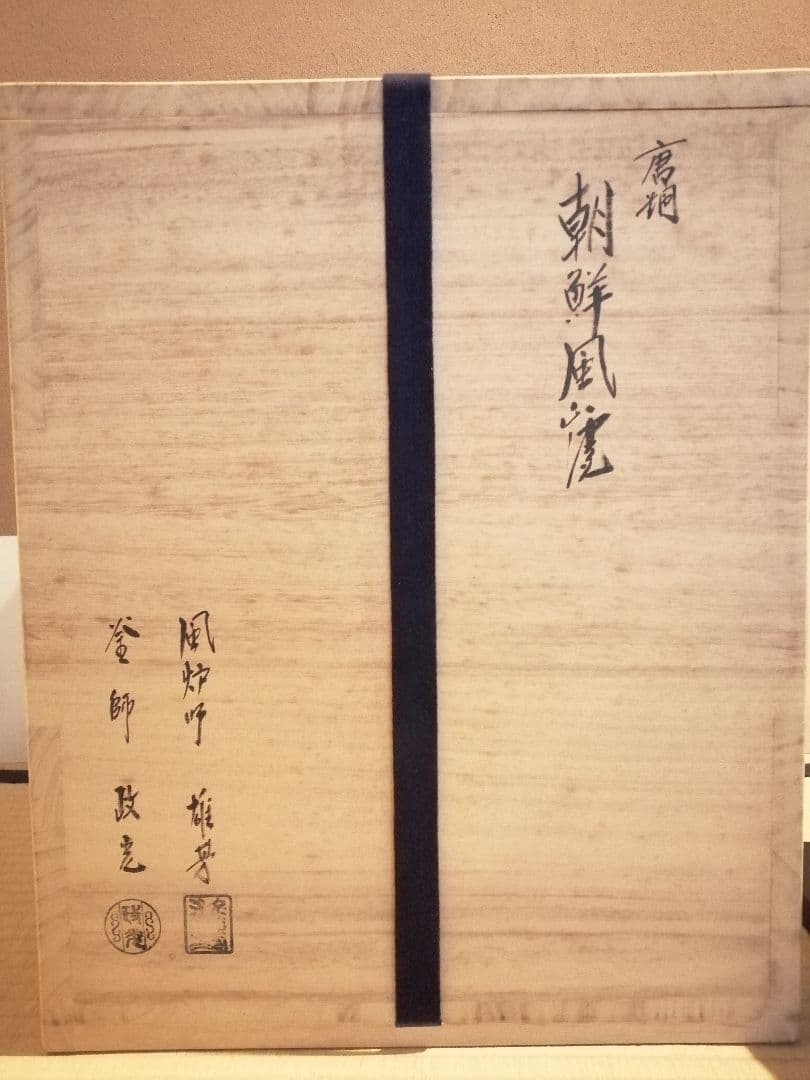 唐銅
朝鮮風爐
風炉師 雄
釜師 政光